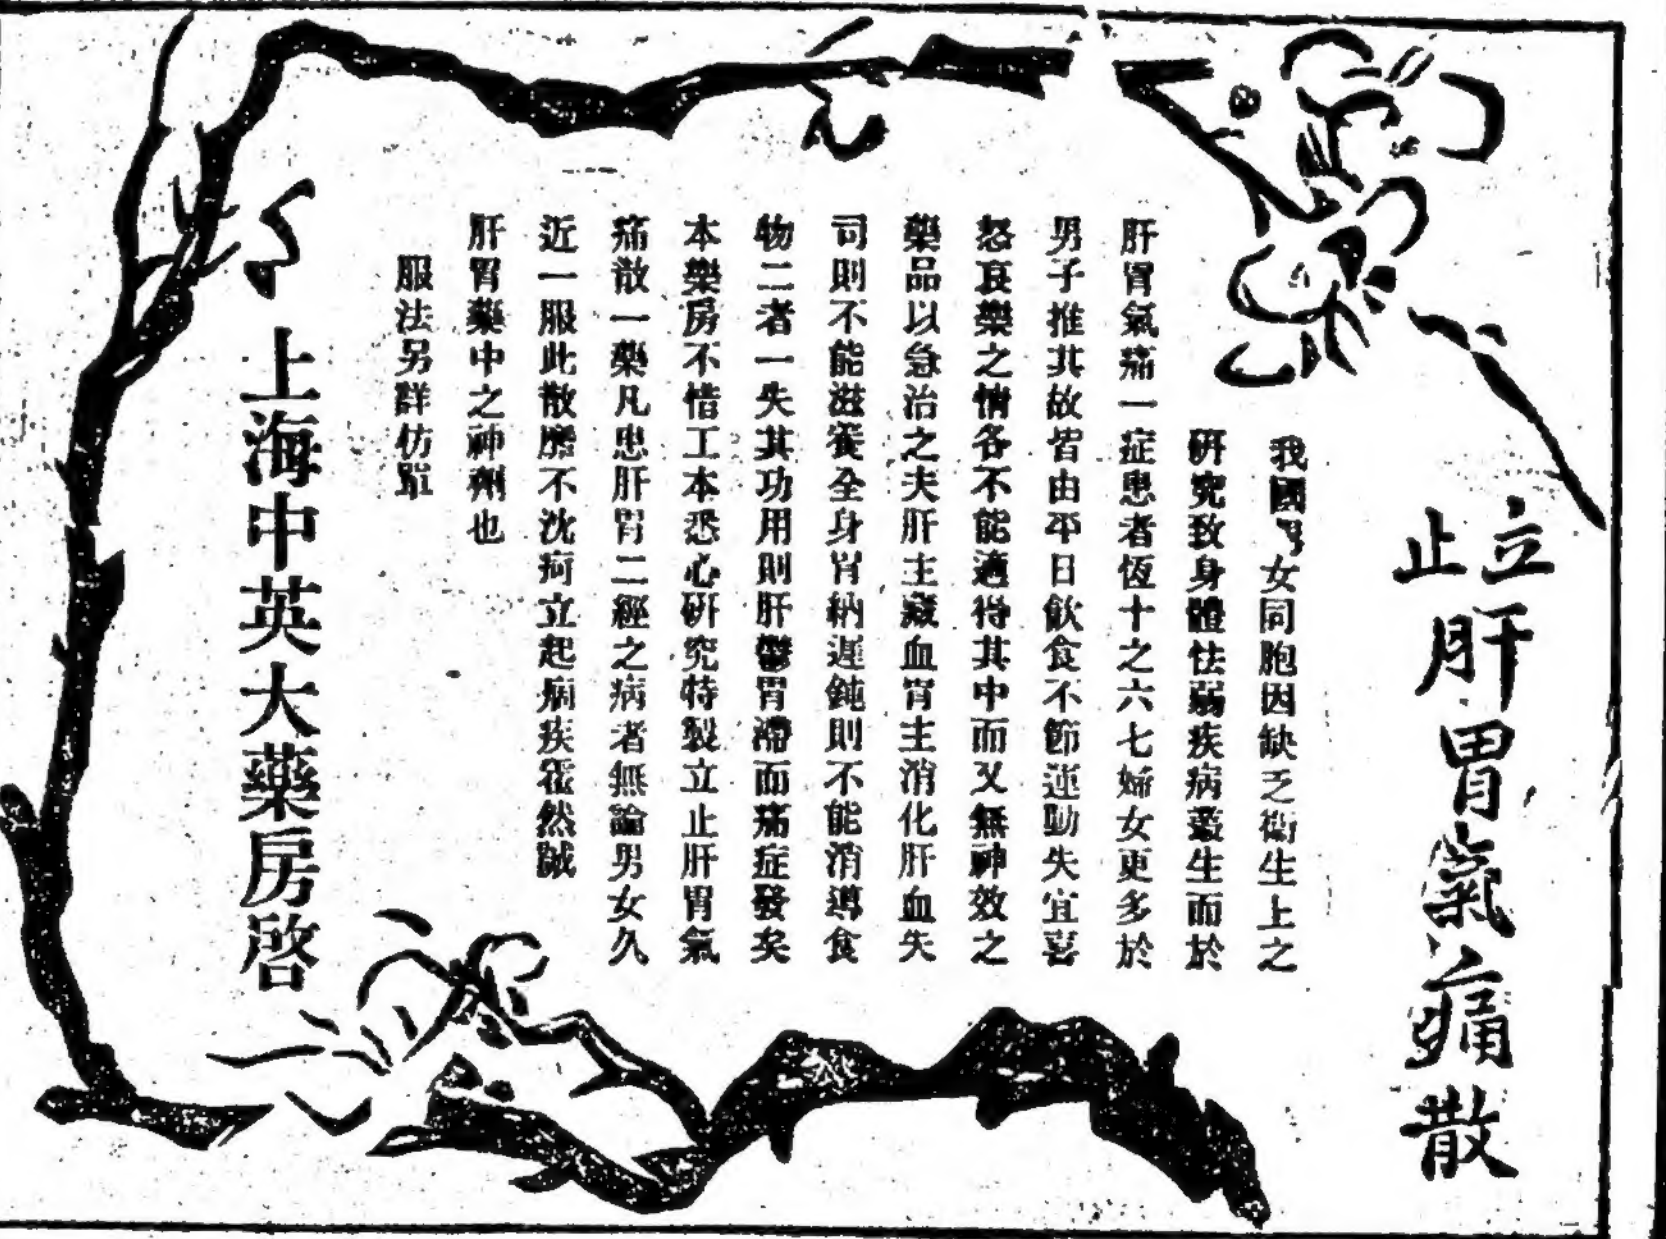 立止肝胃氣痛散
我國男女同胞因缺乏衛生上之
研究致身體怯弱疾病叢生而於
肝胃氣痛一症患者恆十之六七婦女更多於
男子推其故皆由平日飲食不節運動失宜喜
怒哀樂之情各不能適得其中而又無神效之
藥品以急治之夫肝主藏血胃主消化肝血失
司則不能滋養全身胃納遲鈍則不能消導食
物二者一失其功用則肝鬱胃滯而痛症發矣
本藥房不惜工本悉心研究特製立止肝胃氣
痛散一藥凡患肝胃二經之病者無論男女久
近一服此散應不沈疴立起病疾霍然誠
肝胃藥中之神劑也
服法另詳仿單
上海中英大藥房啓